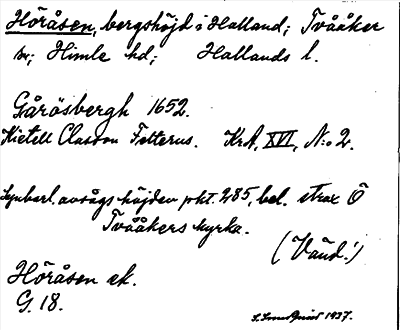 Höråsen, bergshöjd i Halland; Tvååker
sn; Himle hd; Hallands l.
Gåråsbergh 1652.
Kietell Classon Felterus. KrA, XVI, N:o 2.
Synbarl. avsågs höjden pkt. 285, bel. strax Ö
Tvååkers kyrka.
(Vänd!)
Höråsen ek.
G. 18.
1937.